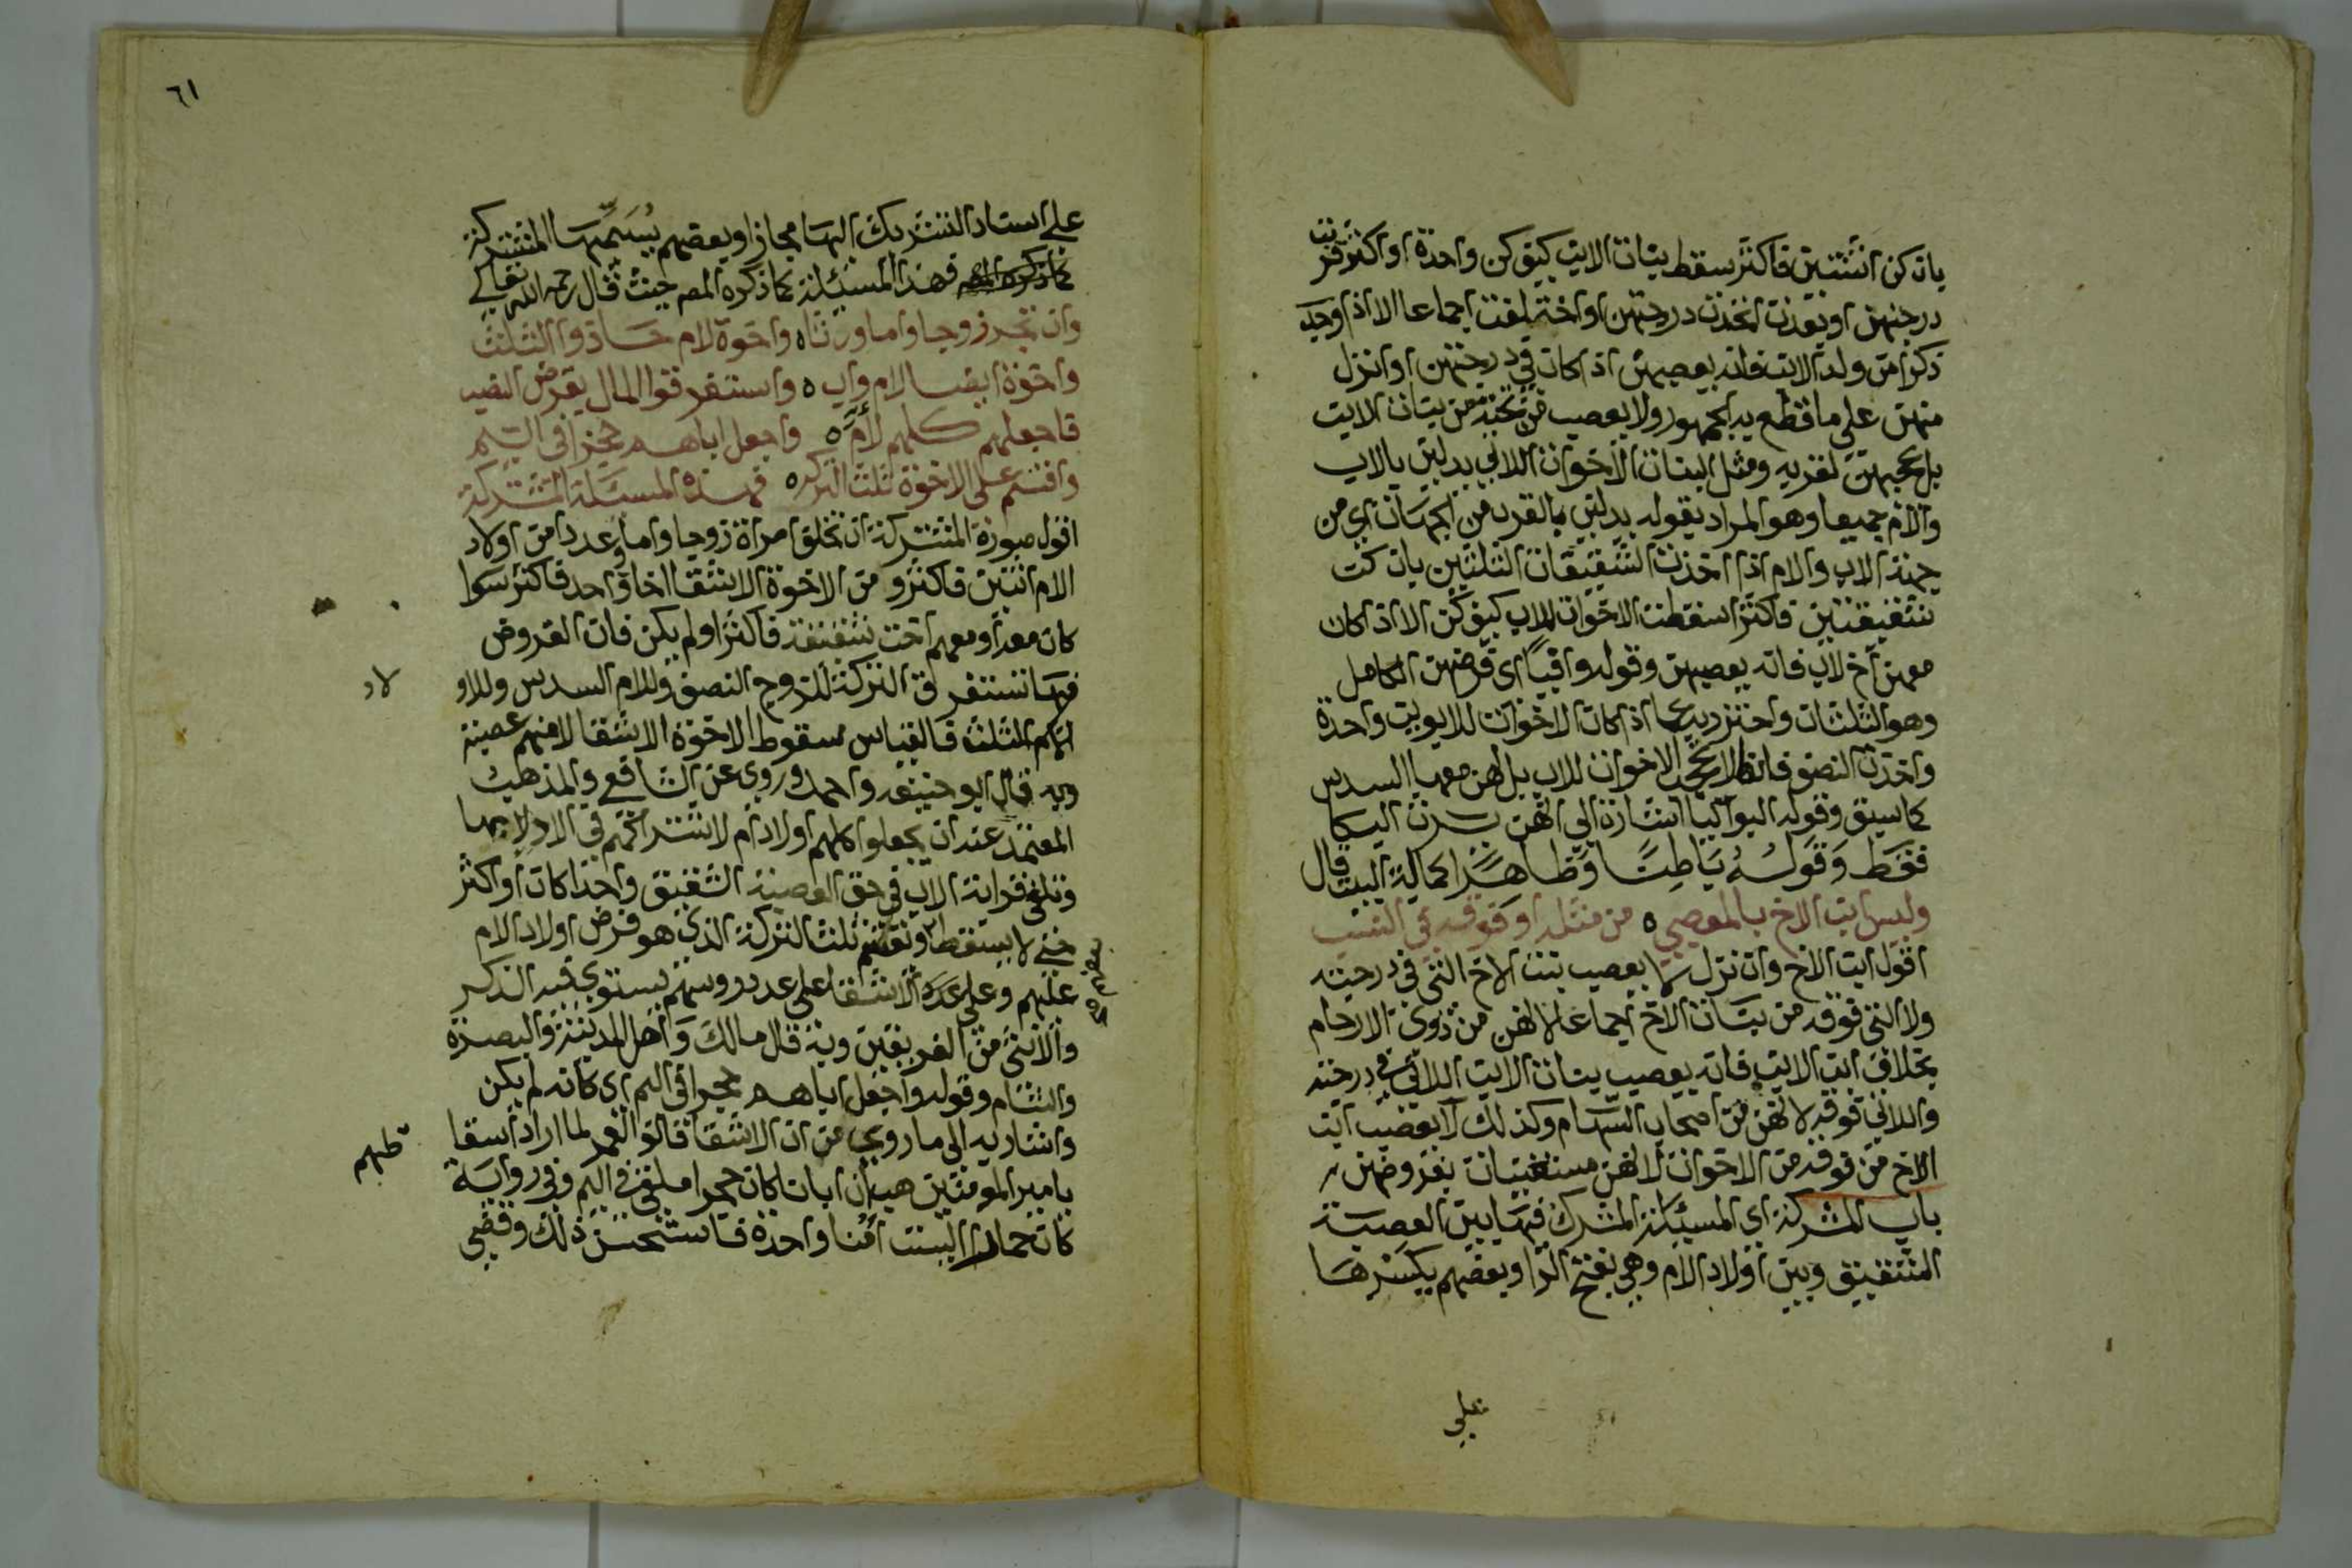 بان كن اثنتين فاكثر سقط بنات الابن كيف كن واحدة او اكثر قربت
درجتهن او بعدت اتحدت درجتهن او اختلفت اجماعا الا اذا وجد
ذكر من ولد الابن فانه يعصبهن اذا كان في درجتهن او انزل
منهن على ما قطع به الجمهور ولا يعصب من تحته من بنات الابن
بل يحجبهن لقربه ومثل البنات الاخوات اللاتي يدلين بالاب
والام جميعا وهو المراد بقوله يدلين بالقرب من الجهات اي من
جهة الاب والام اذا اخذت الشقيقات الثلثين بان كن
شقيقتين فاكثر اسقطت الاخوات للاب كيف كن الا اذا كان
معهن اخ لاب فانه يعصبهن وقوله وافيا اي فرضهن الكامل
وهو الثلثان واحترز به عما اذا كان الاخوات للابوين واحدة
واخذت النصف فانها لا تحجب الاخوات للاب بل لهن معها السدس
كما سبق وقوله البواكيا اشارة الى انهن يرثن البكا
فقط وقوله باطنا وظاهرا كمالة البيت قال
وليس ابن الاخ بالمعصب ٥ من مثله او فوقه في النسب
اقول ابن الاخ وان نزل لا يعصب بنت الاخ التي في درجته
ولا التي فوقه من بنات الاخ اجماعا لانهن من ذوي الارحام
بخلاف ابن الابن فانه يعصب بنات الابن اللاتي في درجته
واللاتي فوقه لانهن من اصحاب السهام وكذلك لا يعصب ابن
الاخ من فوقه من الاخوات لانهن مستغنيات بفروضهن
باب المشركة اي المسئلة المشرك فيها بين العصبة
الشقيق وبين اولاد الام وهي بفتح الرا وبعضهم يكسرها
على
٦١
على اسناد التشريك اليها مجازا وبعضهم يسميها المشتركة
فهذا المسئلة كما ذكره المص حيث قال رحمه الله تعالى
وان تجد زوجا واما ورثاه واخوة لام حازوا الثلث
واخوة ايضا لام واب ٥ واستغرقوا المال بفرض النصب
فاجعلهم كلهم لام ٥ واجعل اباهم حجرا في اليم
واقسم على الاخوة ثلث التركه ٥ فهذه المسئلة المشتركة
اقول صورة المشتركة ان تخلف امراة زوجا واما وعددا من اولاد
الام اثنين فاكثر ومن الاخوة الاشقا اخا واحد فاكثر سوا
كان معه او معهم اخت شقيقة فاكثر او لم يكن فان الفروض
فيها تستغرق التركة للزوج النصف وللام السدس وللاو
لاد
لام الثلث فالقياس سقوط الاخوة الاشقا لانهم عصبة
وبه قال ابو حنيفه واحمد وروي عن الشافعي والمذهب
المعتمد عنده ان يجعلوا كلهم اولاد ام لاشتراكهم في الادلا بها
وتلغى قرابة الاب في حق العصبة الشقيق واحدا كان او اكثر
حتى لا يسقط او نقسم ثلث التركة الذي هو فرض اولاد الام
عليهم وعلى الاشقا على عدد روسهم يستوي فيه الذكر
والانثى من الفريقين وبه قال مالك واهل المدينة والبصرة
والشام وقوله واجعل اباهم حجرا في اليم اي كانه لم يكن
واشار به الى ما روي من ان الاشقا قالوا لعمر لما اراد اسقا
طهم
يا امير المومنين هب ان ابانا كان حجرا ملقى في اليم وفي رواية
كان حمارا الست امنا واحدة فاستحسن ذلك وقضى